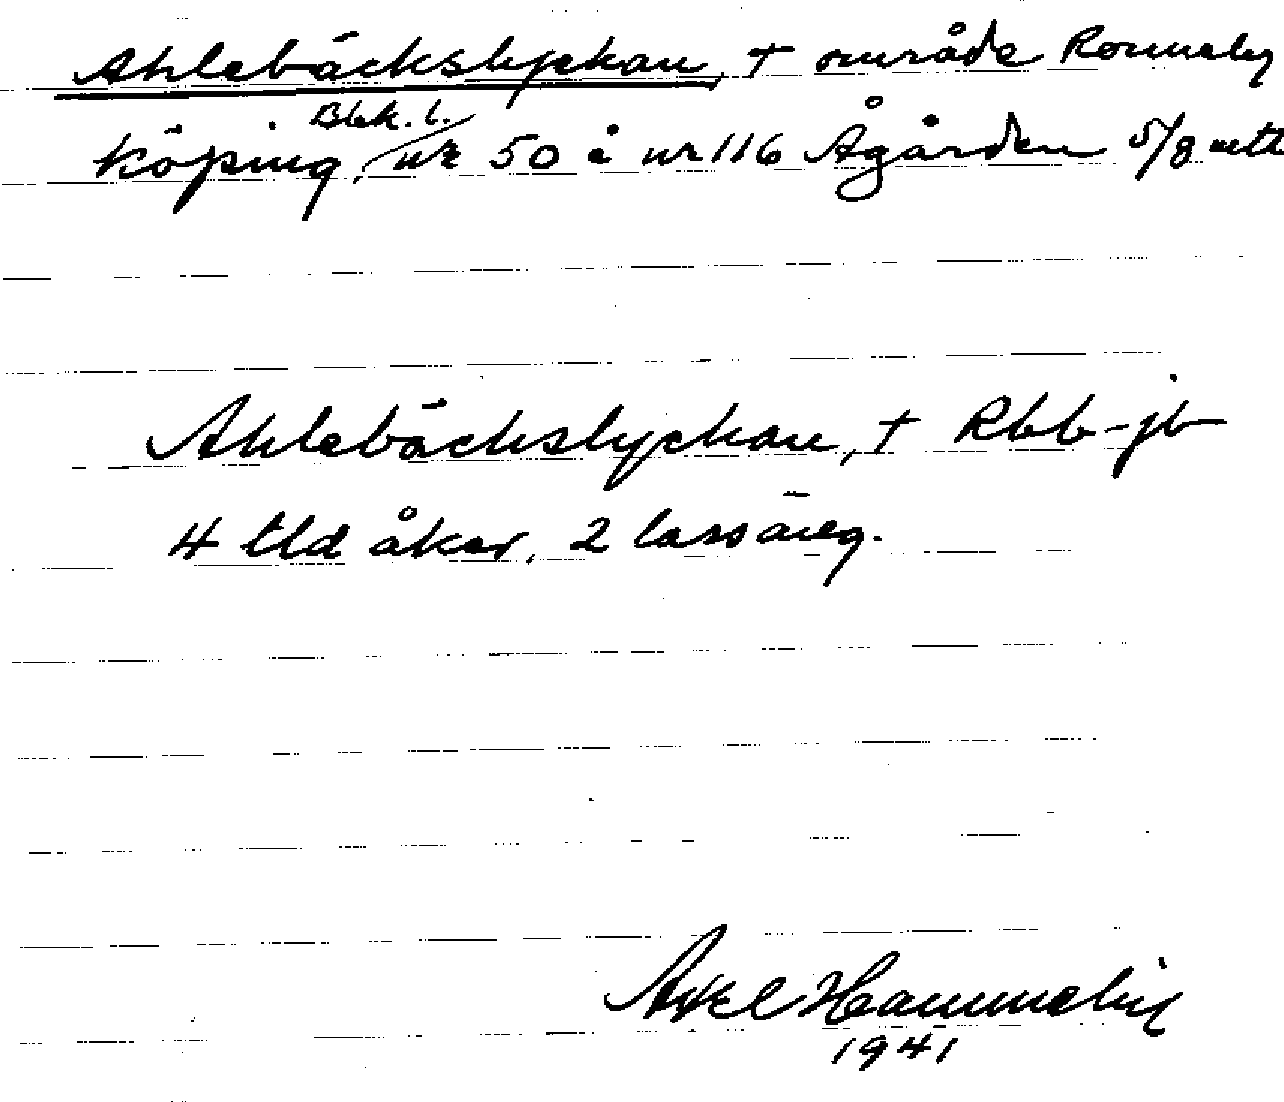 Ahlebäckslyckan, + område Ronneby
Blek. l.
köping, nr 50 å nr 116 Ågården 5/8 mtl
Ahlebäckslyckan, + Rbb-jb
4 tld åker, 2 lass äng.
Axel
1941